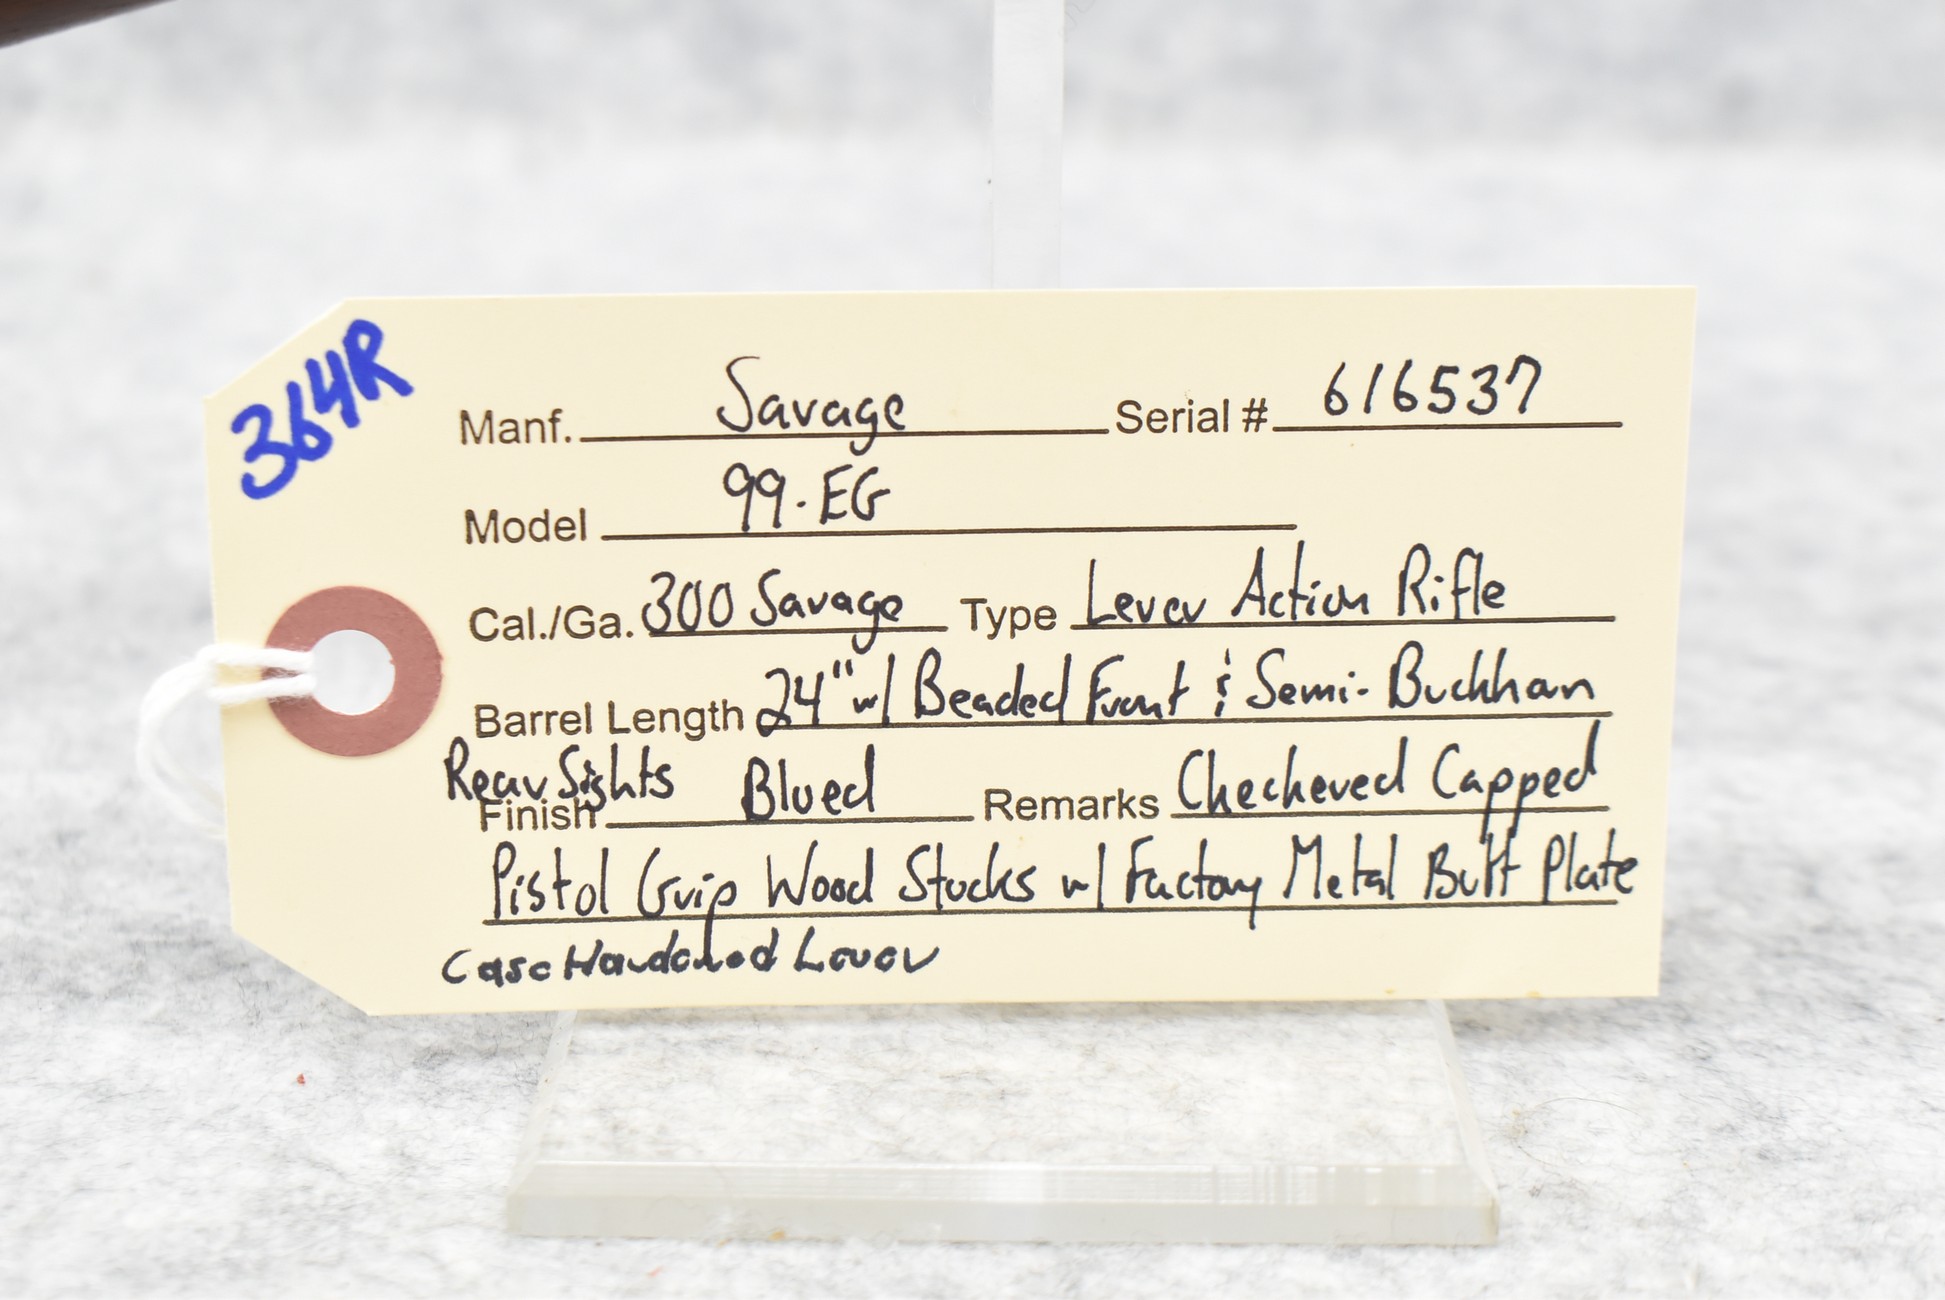 364R
Manf. Savage Serial # 616537
Model 99-EG
Cal./Ga. 300 Savage Type Lever Action Rifle
Barrel Length 24" w/ Beaded Front & Semi-Buckhan
Rear Sights
Finish Blued Remarks Checkered Capped
Pistol Grip Wood Stocks w/ Factory Metal Butt Plate
Case Hardened Lever